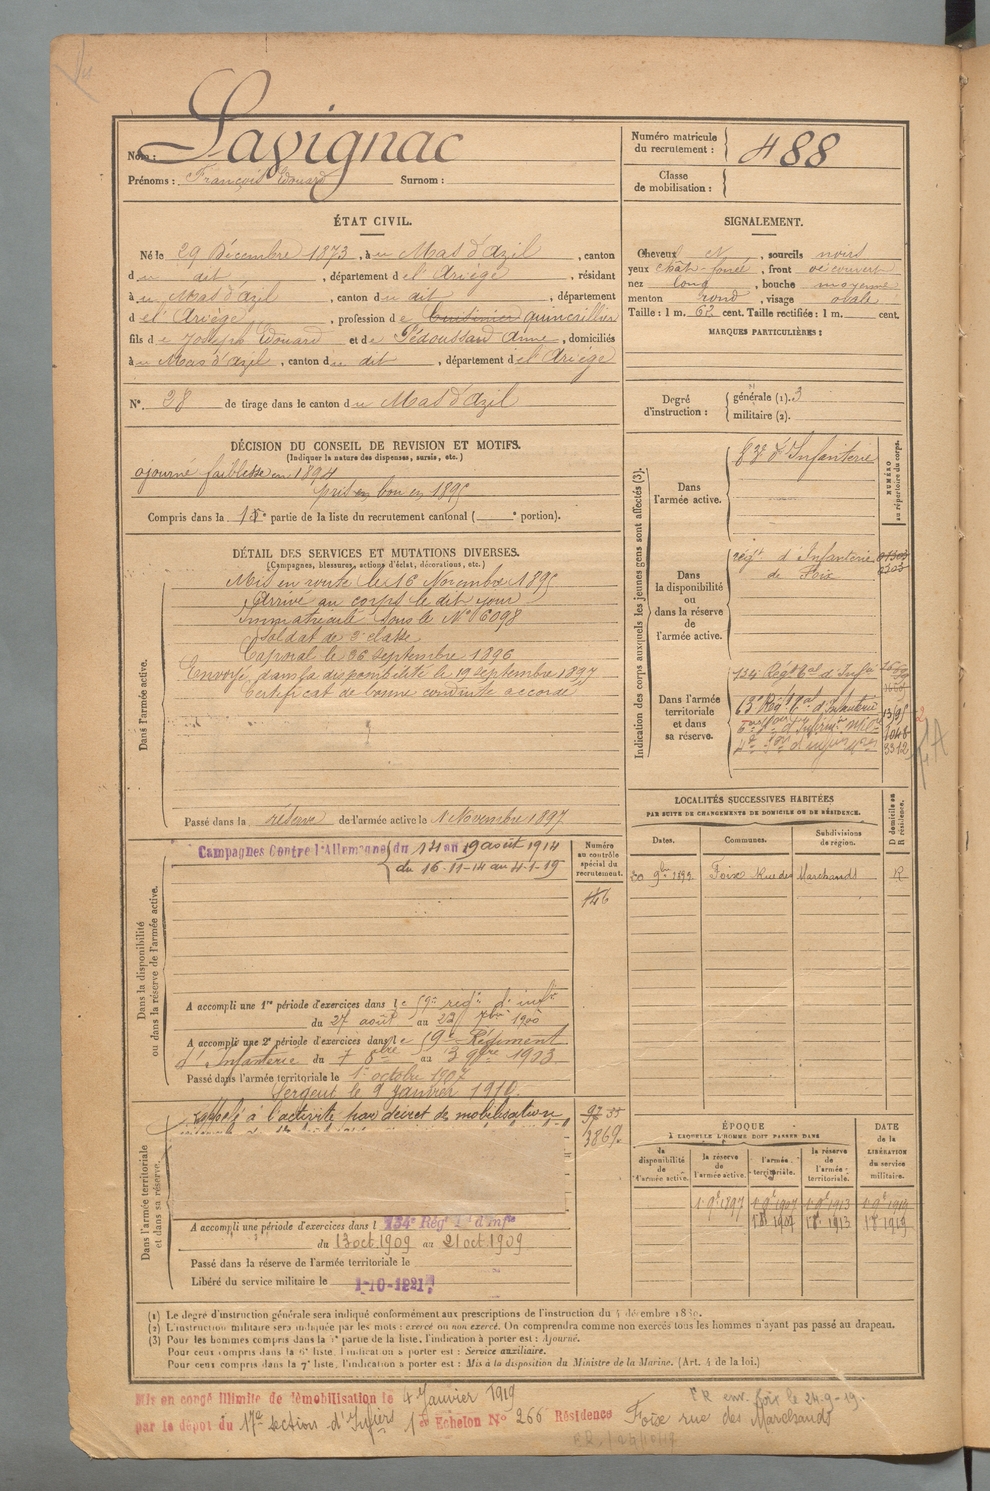 Nom : Lavignac
Prénoms : François Edouard Surnom :
Numéro matricule du recrutement : 488
Classe de mobilisation :
ÉTAT CIVIL.
Né le 29 Décembre 1873, à u Mas d'Azil, canton
d u dit, département d e l'Ariège, résidant
à u Mas d'azil, canton d u dit, département
d e l'Ariège, profession d e Cuisinier quincaillier
fils d e Joseph Edouard et de Pédoussaud Anne, domiciliés
à u Mas d'Azil, canton d u dit, département d e l'Ariège
N° 28 de tirage dans le canton d u Mas d'Azil
SIGNALEMENT.
Cheveux N, sourcils noirs
yeux chât-foncé, front découvert
nez long, bouche moyenne
menton rond, visage ovale
Taille : 1 m. 62 cent. Taille rectifiée : 1 m. cent.
MARQUES PARTICULIÈRES :
Degré d'instruction : générale (1). 3
militaire (2).
DÉCISION DU CONSEIL DE REVISION ET MOTIFS.
(Indiquer la nature des dispenses, sursis, etc.)
ajourné faiblesse en 1894
pris bon en 1895
Compris dans la 1e partie de la liste du recrutement cantonal ( e portion).
DÉTAIL DES SERVICES ET MUTATIONS DIVERSES.
(Campagnes, blessures, actions d'éclat, décorations, etc.)
Dans l'armée active.
Mis en route le 16 Novembre 1895
Arrivé au corps le dit jour
Immatriculé sous le N° 6098
Soldat de 2e classe
Caporal le 26 septembre 1896
Envoyé dans la disponibilité le 19 septembre 1897
Certificat de bonne conduite accordé
Passé dans la réserve de l'armée active le 1 Novembre 1897
Indication des corps auxquels les jeunes gens sont affectés (3).
NUMÉRO au répertoire du corps.
Dans l'armée active.
83e d'Infanterie
Dans la disponibilité ou dans la réserve de l'armée active.
régt d'Infanterie de Foix
Dans l'armée territoriale et dans sa réserve.
134e Régt tal d'Infie
LOCALITÉS SUCCESSIVES HABITÉES
PAR SUITE DE CHANGEMENTS DE DOMICILE OU DE RÉSIDENCE.
Dates. Communes. Subdivisions de région. D domicile ou R résidence.
Foix Rue des Marchands R
Dans la disponibilité ou dans la réserve de l'armée active.
Campagnes Contre l'Allemagne du 14 au 19 août 1914
du 16-11-14 au 4-1-19
Numéro au contrôle spécial du recrutement.
A accompli une 1re période d'exercices dans le 59e régt d'infie
du 27 août au 23 7bre 1900
A accompli une 2e période d'exercices dans le 59e Régiment
d'Infanterie du 7 8bre au 3 9bre 1903
Passé dans l'armée territoriale le 1er octobre 1907
Sergent le 9 janvier 1910.
Dans l'armée territoriale et dans sa réserve.
rappelé à l'activité par décret de mobilisation
3869
A accompli une période d'exercices dans l 134e Régt tal d'Infie
du 13 oct. 1909 au 21 oct. 1909
Passé dans la réserve de l'armée territoriale le
Libéré du service militaire le 1-10-1921
ÉPOQUE
À LAQUELLE L'HOMME DOIT PASSER DANS
DATE de la LIBÉRATION du service militaire.
la disponibilité de l'armée active. la réserve de l'armée active. l'armée territoriale. la réserve de l'armée territoriale.
(1) Le degré d'instruction générale sera indiqué conformément aux prescriptions de l'instruction du 4 décembre 1889.
(2) L'instruction militaire sera indiquée par les mots : exercé ou non exercé. On comprendra comme non exercés tous les hommes n'ayant pas passé au drapeau.
(3) Pour les hommes compris dans la 5e partie de la liste, l'indication à porter est : Ajourné.
Pour ceux compris dans la 6e liste, l'indication à porter est : Service auxiliaire.
Pour ceux compris dans la 7e liste, l'indication à porter est : Mis à la disposition du Ministre de la Marine. (Art. 4 de la loi.)
Mis en congé illimité de démobilisation le 4 Janvier 1919
par le dépôt du 17e Section d'Infiers 1er Echelon N° 266 Résidence Foix rue des Marchands